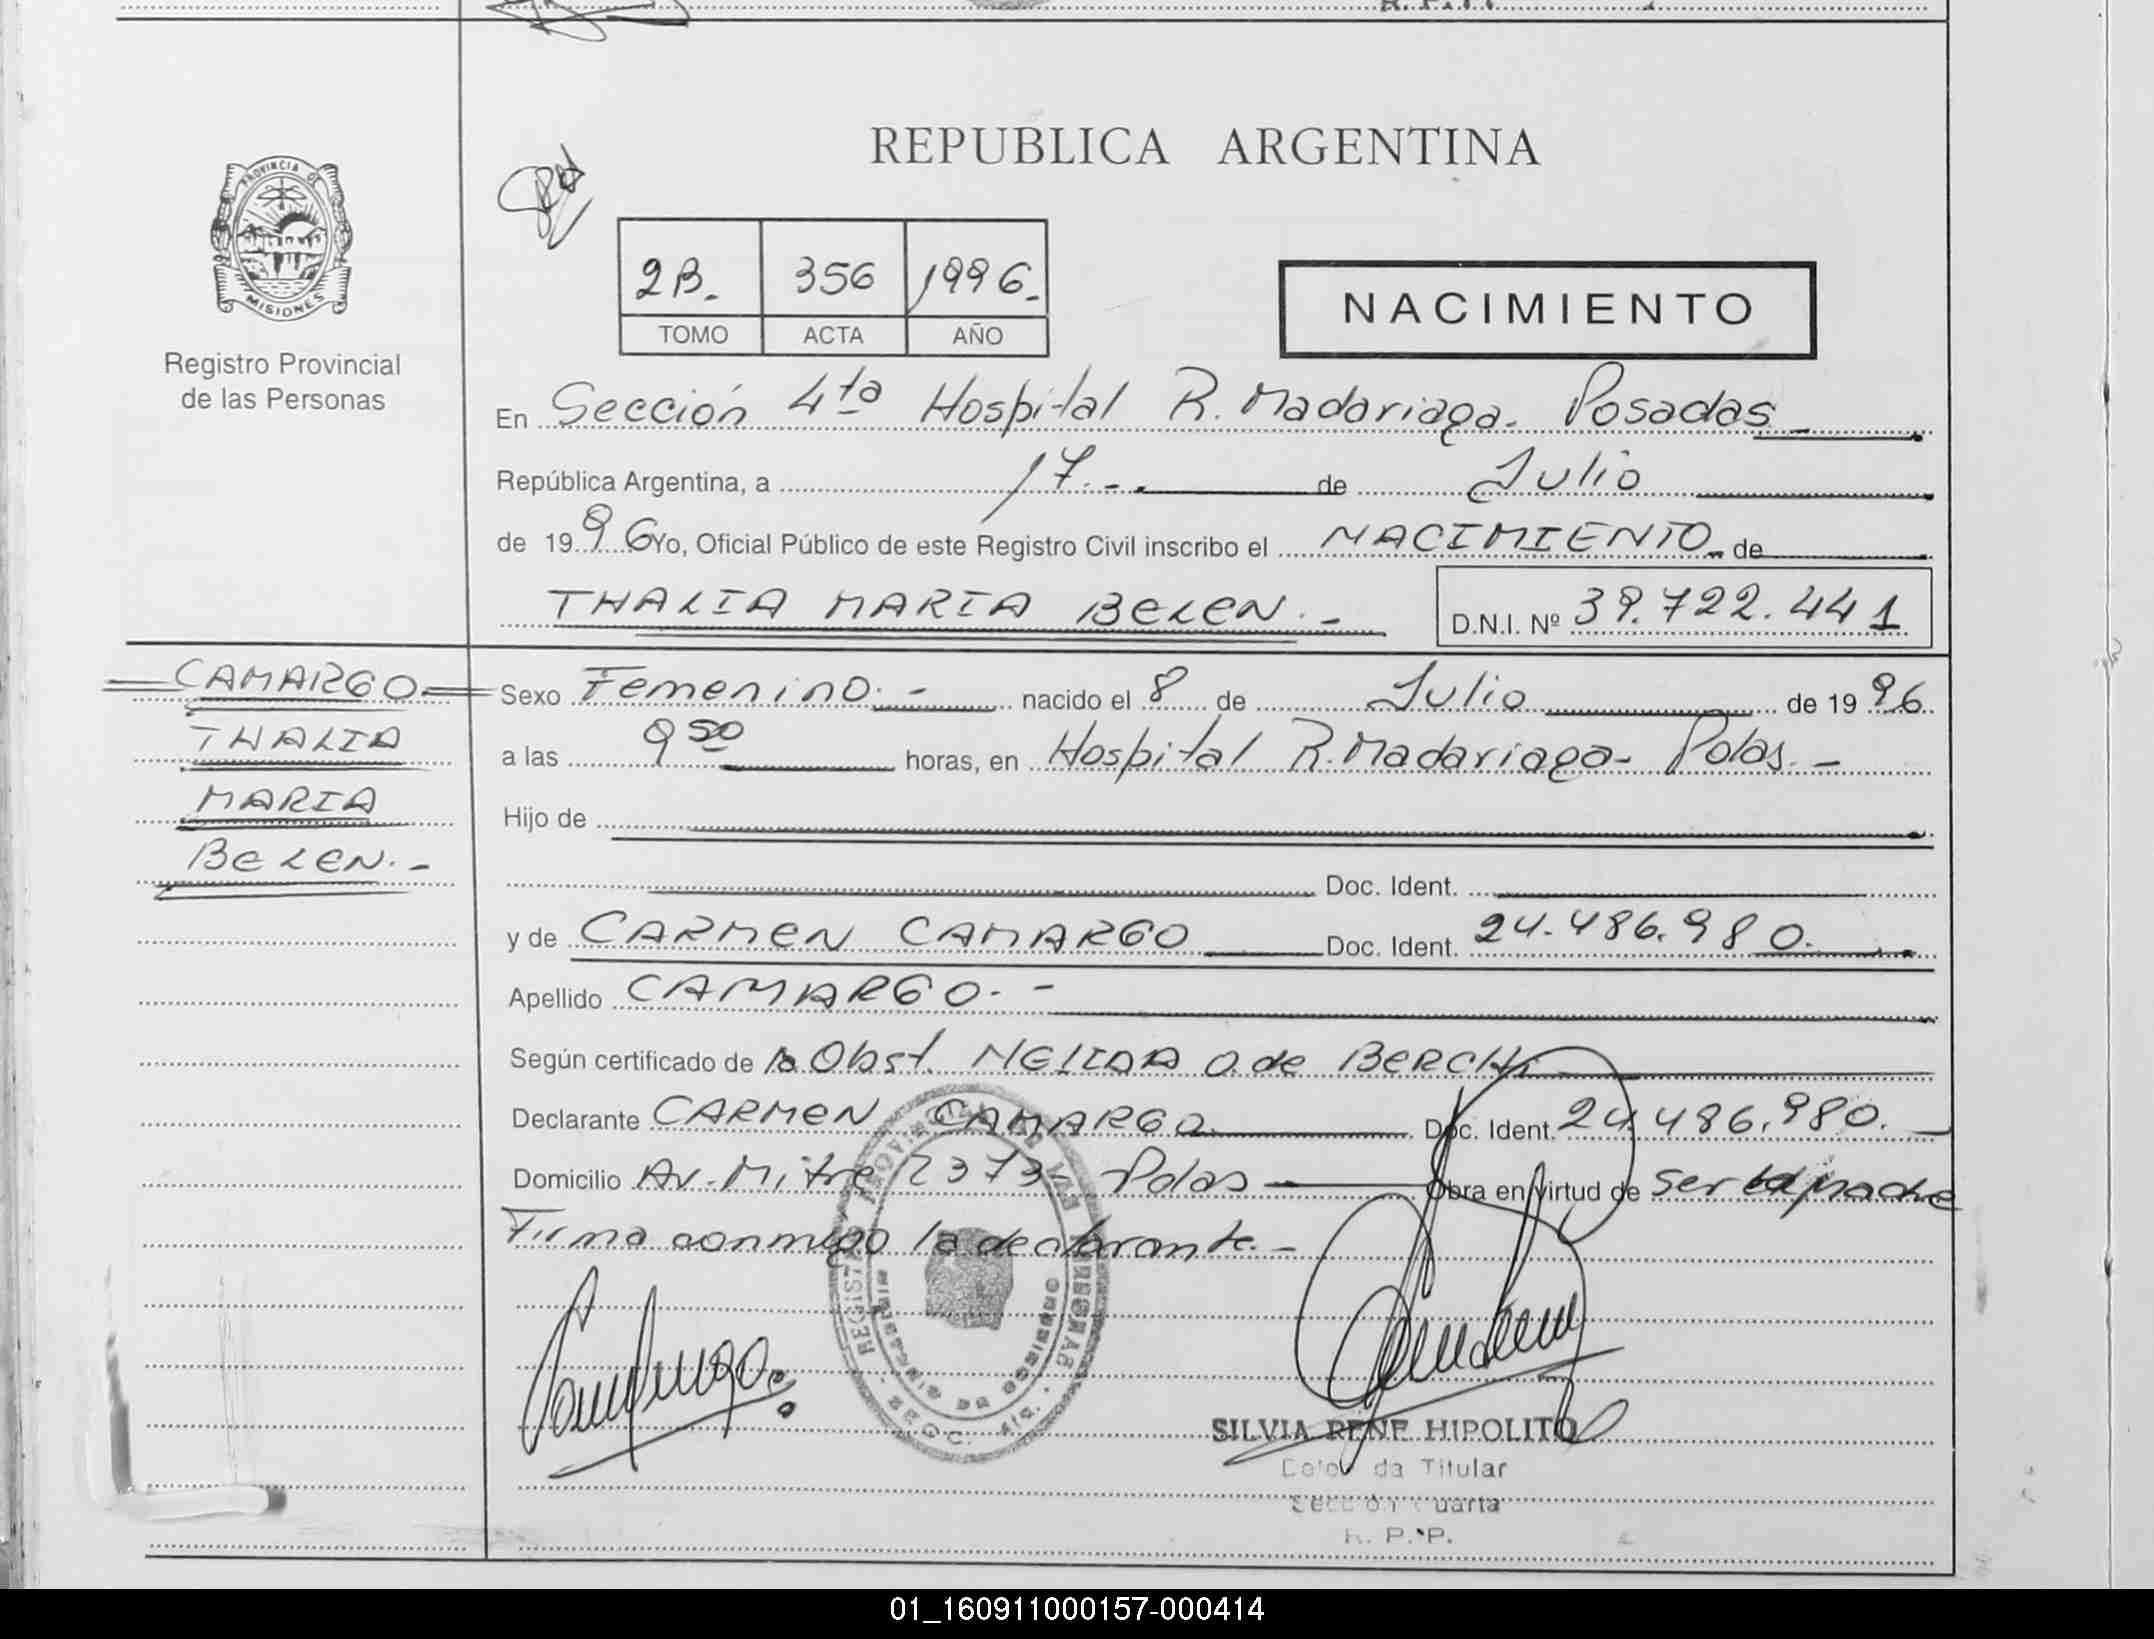 REPUBLICA ARGENTINA
PROVINCIA DE
MISIONES
Registro Provincial
de las Personas
2B. 356 1996.
TOMO ACTA AÑO
NACIMIENTO
En Sección 4ta Hospital R. Madariaga. Posadas
República Argentina, a 17 de Julio
de 1996 Yo, Oficial Público de este Registro Civil inscribo el NACIMIENTO de
THALIA MARIA BELEN.-
D.N.I. Nº 39.722.441
CAMARGO
THALIA
MARIA
BELEN.-
Sexo Femenino.- nacido el 8 de Julio de 1996
a las 9 50 horas, en Hospital R. Madariaga- Pdas.-
Hijo de
Doc. Ident.
y de CARMEN CAMARGO Doc. Ident. 24.486.980.
Apellido CAMARGO.-
Según certificado de la Obst. NELIDA O. de BERCHI
Declarante CARMEN CAMARGO Doc. Ident. 24.486.980.
Domicilio Av. Mitre 2373. Pdas Obra en virtud de ser la madre
Firma conmigo la declarante.-
REGISTRO PROVINCIAL DE LAS PERSONAS
MINISTERIO DE GOBIERNO
SECC. 4ta.
SILVIA RENE HIPOLITO
Titular
Sección Cuarta
R. P. P.
01_160911000157-000414